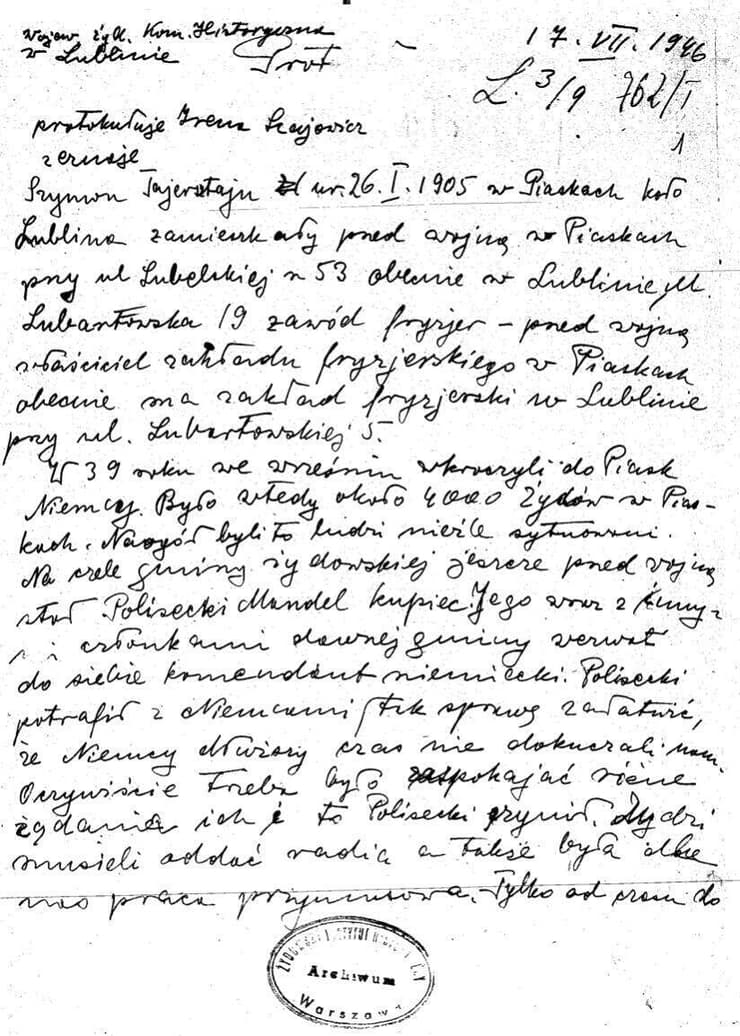 Wojew. Żyd. Kom. Historyczna
w Lublinie
Prot
17. VII. 1946
L. 3/9 762/I
1
protokułuje Irena Szajowicz
zeznaje
Szymon Tajersztajn ur. 26. I. 1905 w Piaskach koło
Lublina zamieszkały przed wojną w Piaskach
przy ul Lubelskiej n 53 obecnie w Lublinie, ul.
Lubartowska 19 zawód fryzjer – przed wojną
właściciel zakładu fryzjerskiego w Piaskach
obecnie ma zakład fryzjerski w Lublinie
przy ul. Lubartowskiej 5.
W 39 roku we wrześniu wkroczyli do Piask
Niemcy. Było wtedy około 4000 Żydów w Pias-
kach. Naogół byli to ludzi nieźle sytuowani.
Na czele gminy żydowskiej jeszcze przed wojną
stał Polisecki Mendel kupiec. Jego wraz z innym-
i członkami dawnej gminy wezwał
do siebie komendant niemiecki. Polisecki
potrafił z Niemcami tak sprawę załatwić,
że Niemcy dłuższy czas nie dokuczali nam.
Oczywiście trzeba było zaspokajać różne
żądania ich i to Polisecki czynił. Żydzi
musieli oddać radia a także była dla
nas praca przymusowa. Tylko od czasu do
ŻYDOWSKI INSTYTUT HISTORYCZNY
Archiwum
Warszawa